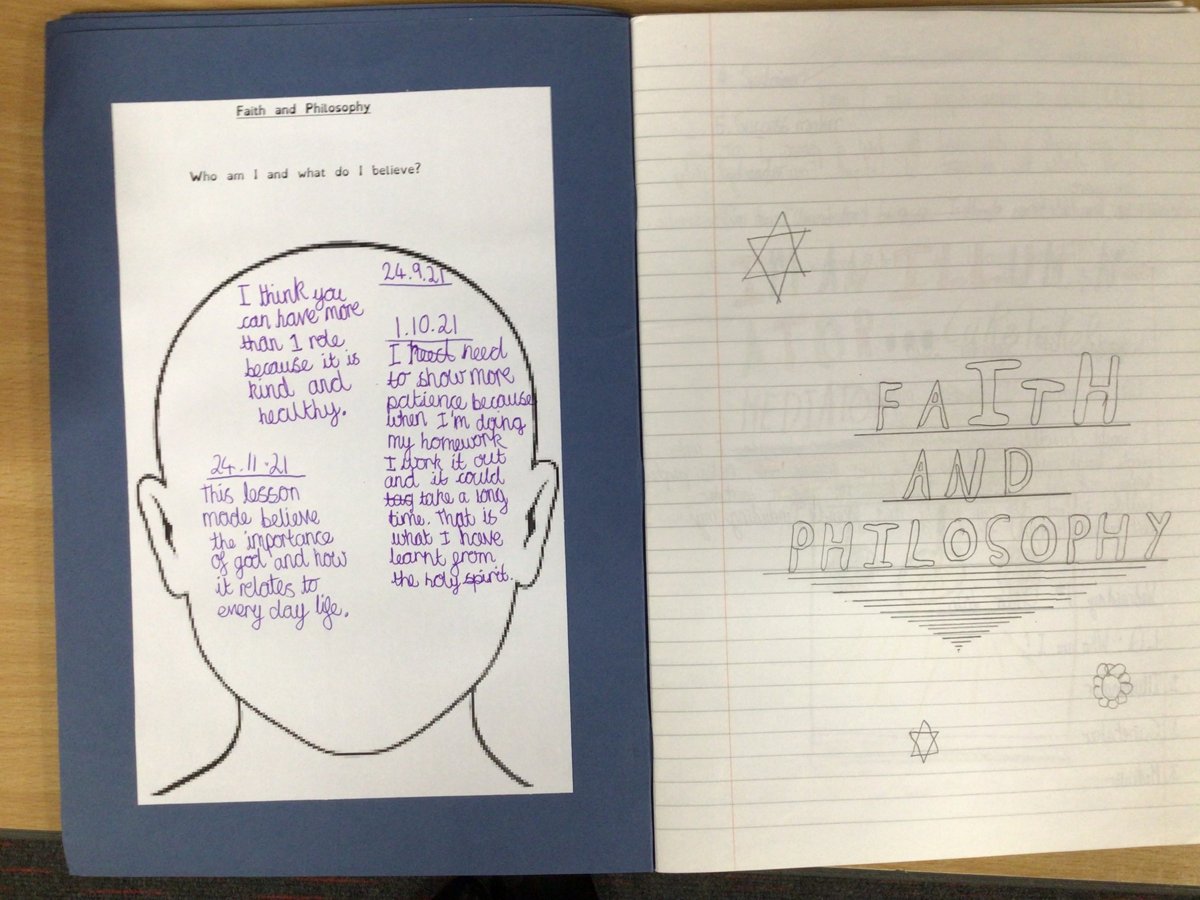 Faith and Philosophy
Who am I and what do I believe?
24.9.21
I think you
can have more
than 1 role
because it is
kind and
healthy.
1.10.21
I need need
to show more
patience because
when I'm doing
my homework
I work it out
and it could
take a long
time. That is
what I have
learnt from
the holy spirit.
24.11.21
This lesson
made believe
the importance
of god and how
it relates to
every day life.
FAITH
AND
PHILOSOPHY